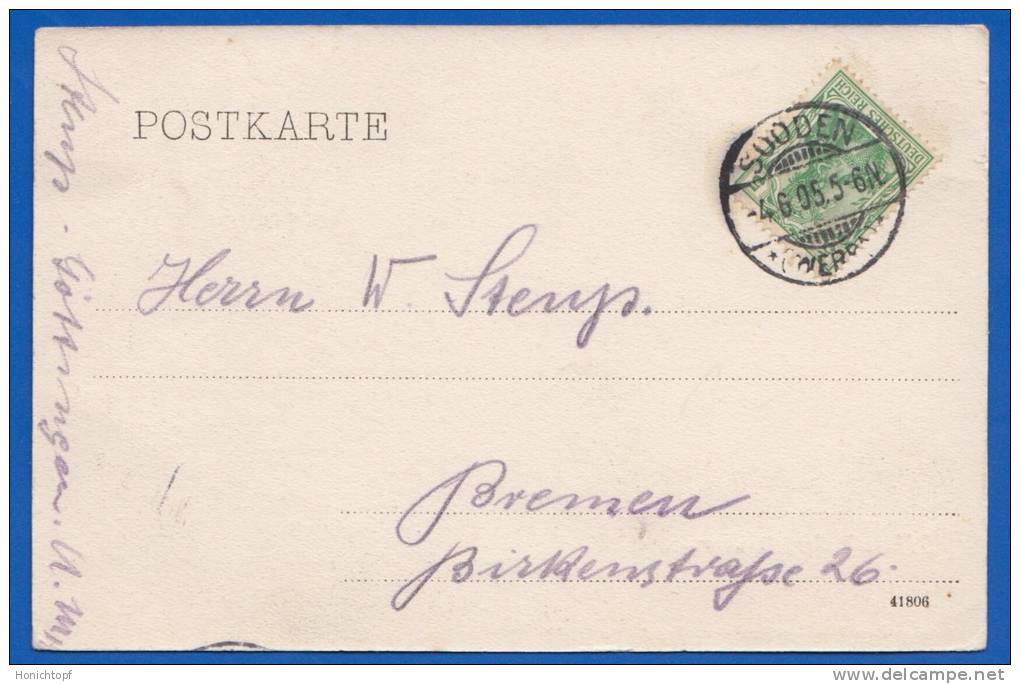 POSTKARTE
DEUTSCHES REICH
SOODEN
4.6.05.5-6N.
* (WERRA)
Herrn W. Stenps.
Bremen
Birkenstraße 26.
41806
Göttingen.
Honichtopf
delcampe.net